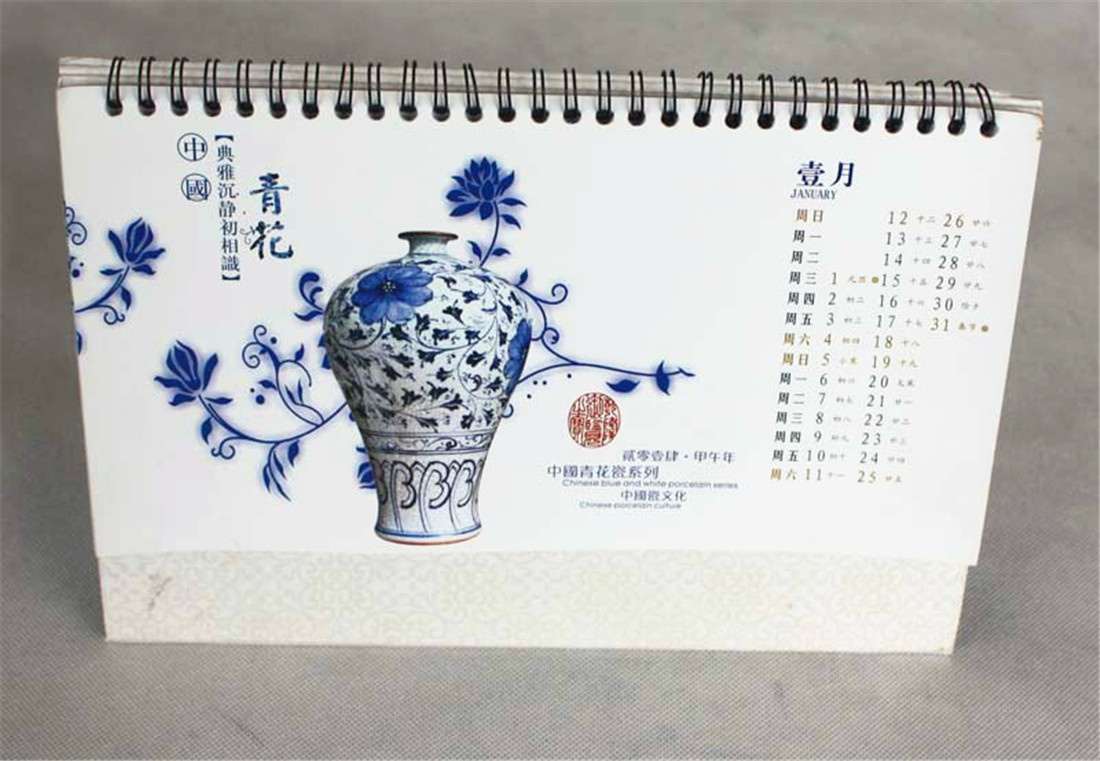 中國
【典雅沉静初相識】
青花
壹月
JANUARY
周日 12 十二 26 廿六
周一 13 十三 27 廿七
周二 14 十四 28 廿八
周三 1 元旦 15 十五 29 廿九
周四 2 初二 16 十六 30 除夕
周五 3 初三 17 十七 31 春节
周六 4 初四 18 十八
周日 5 小寒 19 十九
周一 6 初六 20 大寒
周二 7 初七 21 廿一
周三 8 初八 22 廿二
周四 9 初九 23 廿三
周五 10 初十 24 廿四
周六 11 十一 25 廿五
貳零壹肆·甲午年
中國青花瓷系列
Chinese blue and white porcelain series
中國瓷文化
Chinese porcelain culture